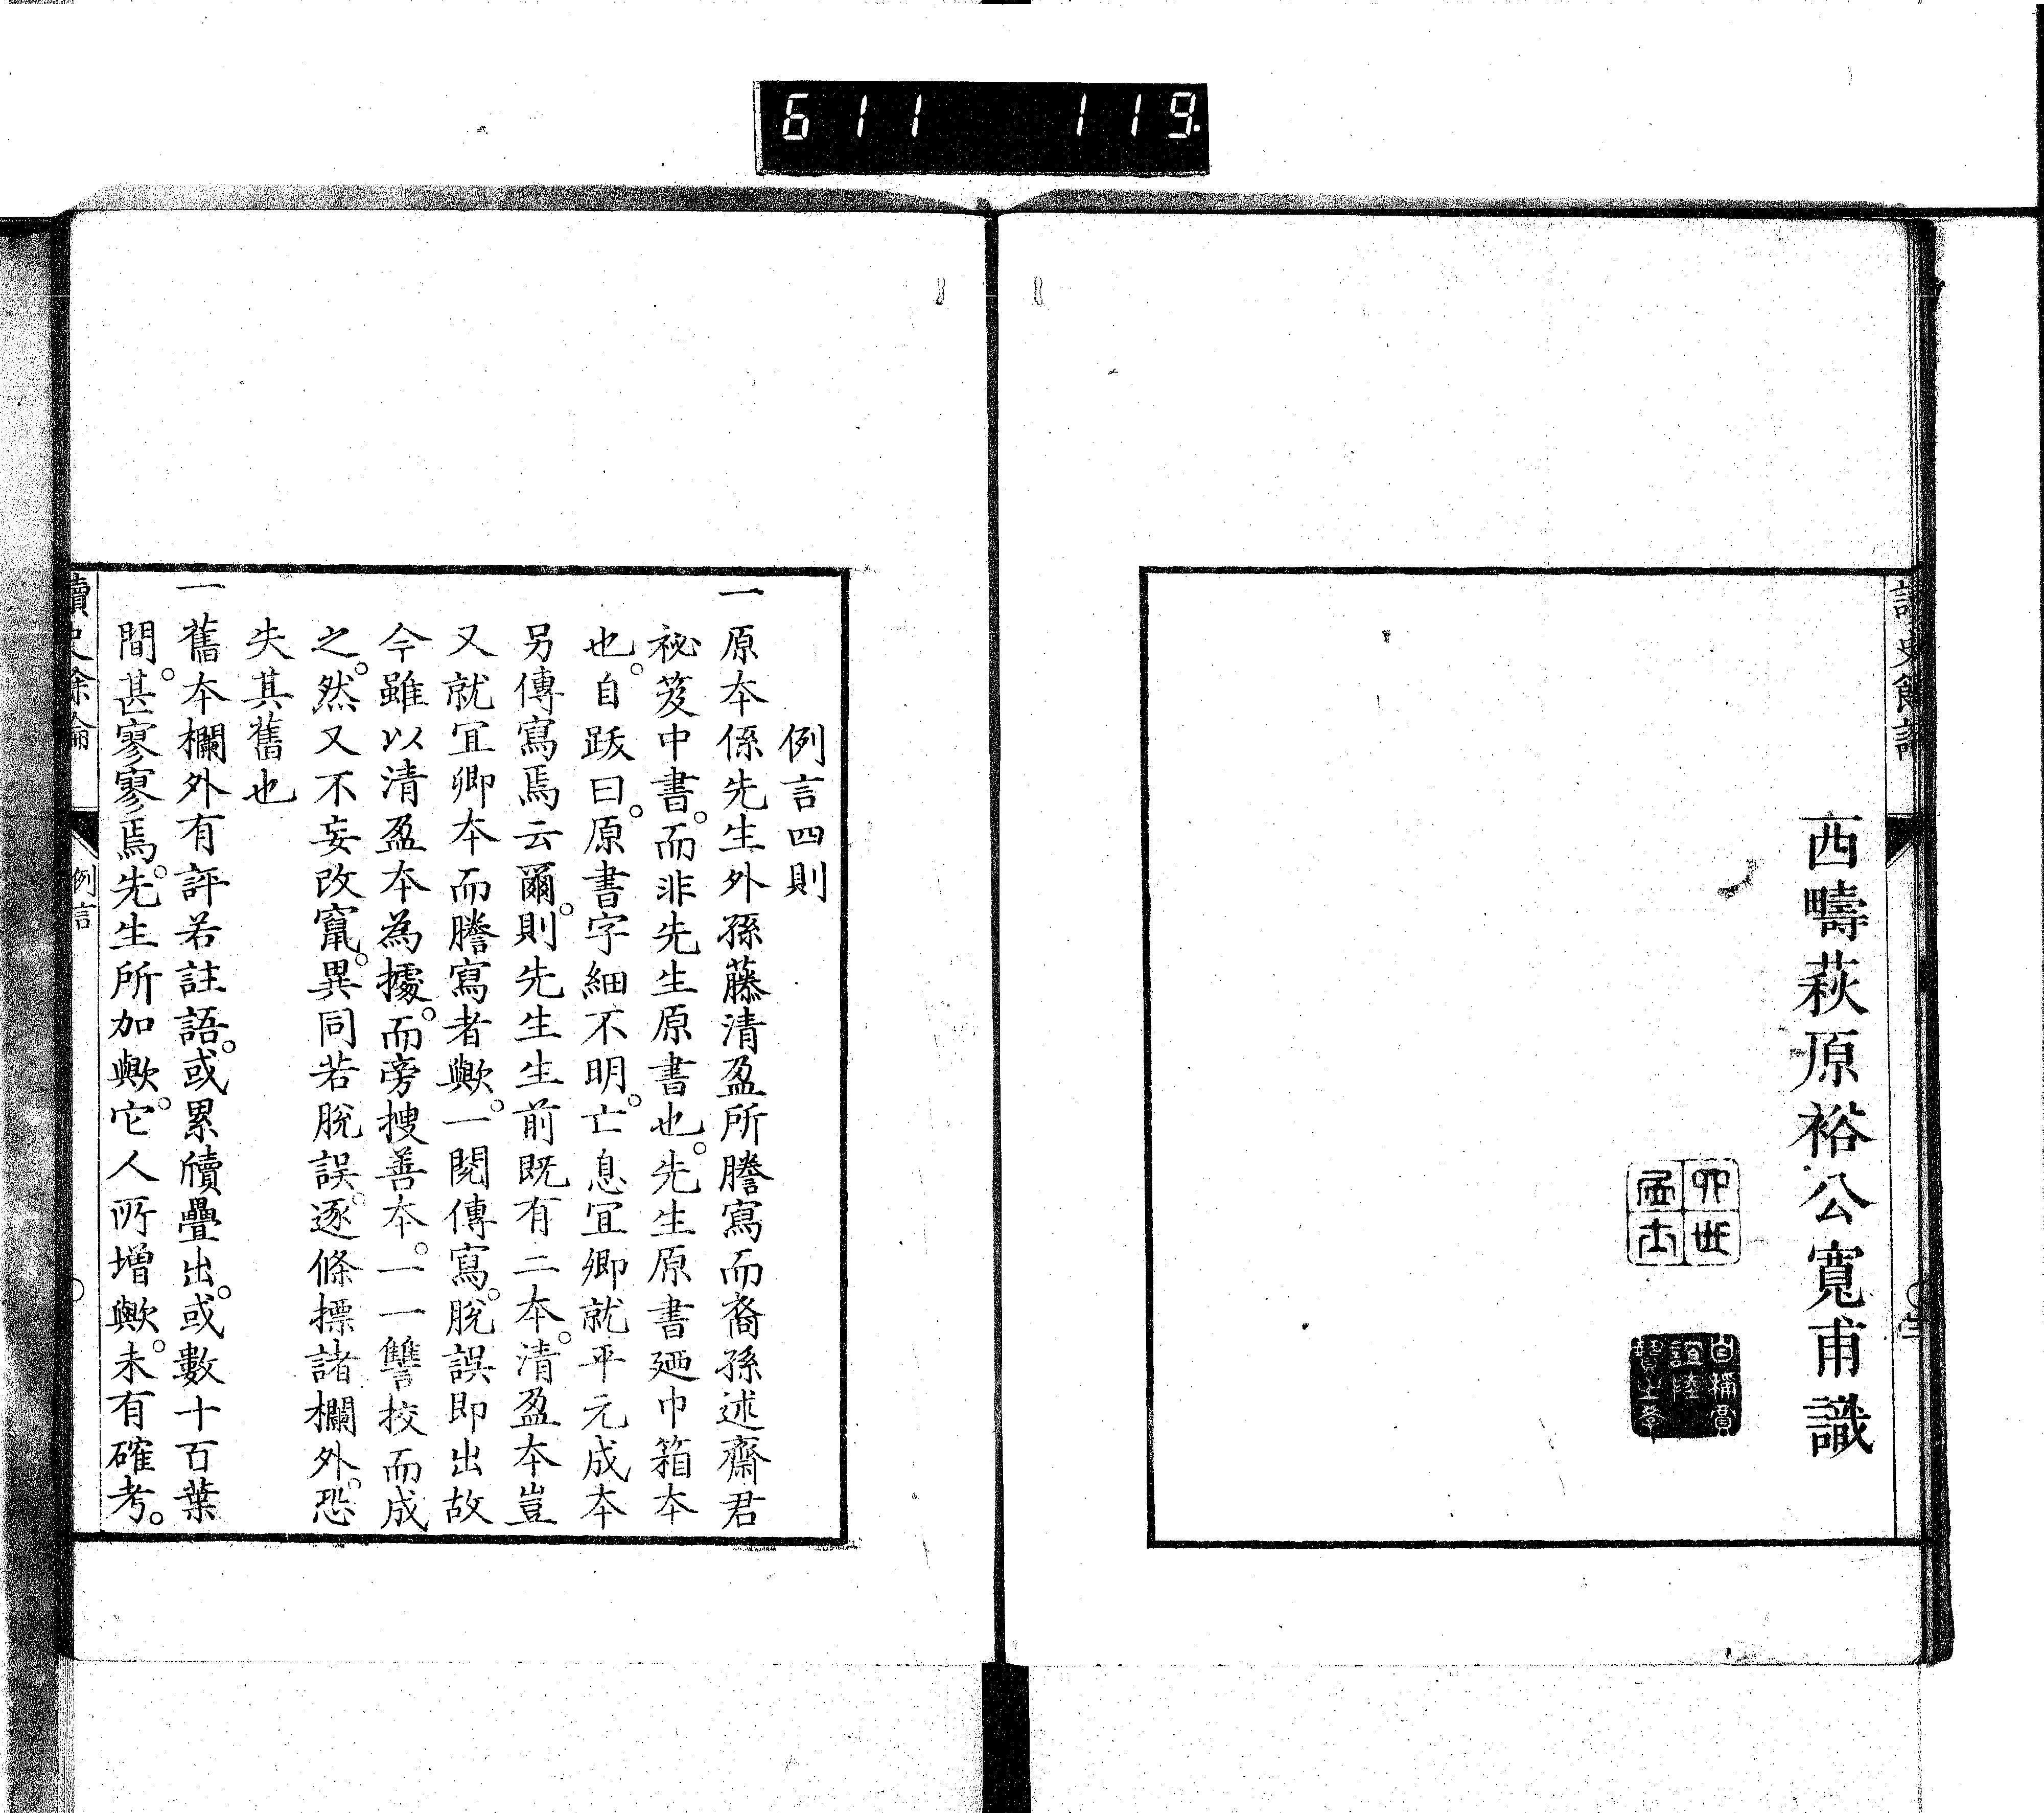 611 119.
西疇萩原裕公寬甫識
例言四則
一原本係先生外孫藤清盈所謄寫而裔孫述齋君
祕笈中書。而非先生原書也。先生原書廼巾箱本
也。自跋曰。原書字細不明。亡息宜卿就平元成本
另傳寫焉云爾。則先生生前既有二本。清盈本豈
又就宜卿本而謄寫者歟。一閱傳寫。脫誤即出故
今雖以清盈本為據。而旁搜善本。一一讐挍而成
之。然又不妄改竄。異同若脫誤。逐條摽諸欄外。恐
失其舊也
一舊本欄外有評若註語。或累牘疊出。或數十百葉
間。甚寥寥焉。先生所加歟。它人所增歟。未有確考。
讀史餘論
例言